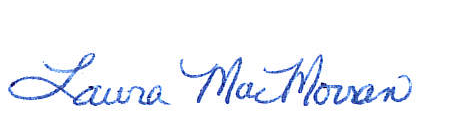 Laura MacMorran